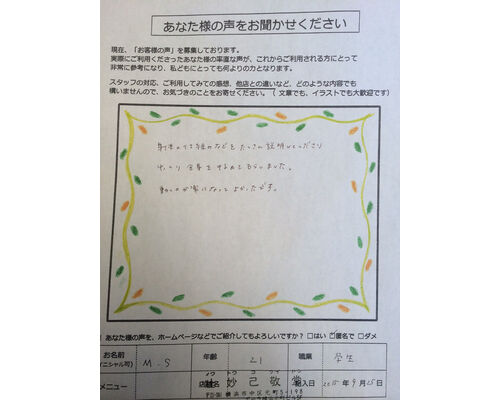 あなた様の声をお聞かせください
現在、「お客様の声」を募集しております。
実際にご利用くださったあなた様の率直な声が、これからご利用される方にとって
非常に参考になり、私どもにとっても何よりの力となります。
スタッフの対応、ご利用してみての感想、他店との違いなど、どのような内容でも
構いませんので、お気づきのことをお寄せください。（ 文章でも、イラストでも大歓迎です）
身体の仕組みなどをたくさん説明してくださり
ゆっくり をすすめてもらいました。
動くのが楽になってよかったです。
あなた様の声を、ホームページなどでご紹介してもよろしいですか？ □はい ☑匿名で □ダメ
お名前 M.S 年齢 21 職業 学生
イニシャル可)
メニュー 店舗名 妙己敬堂 記入日 2015年9月25日
横浜市中区元町5-198